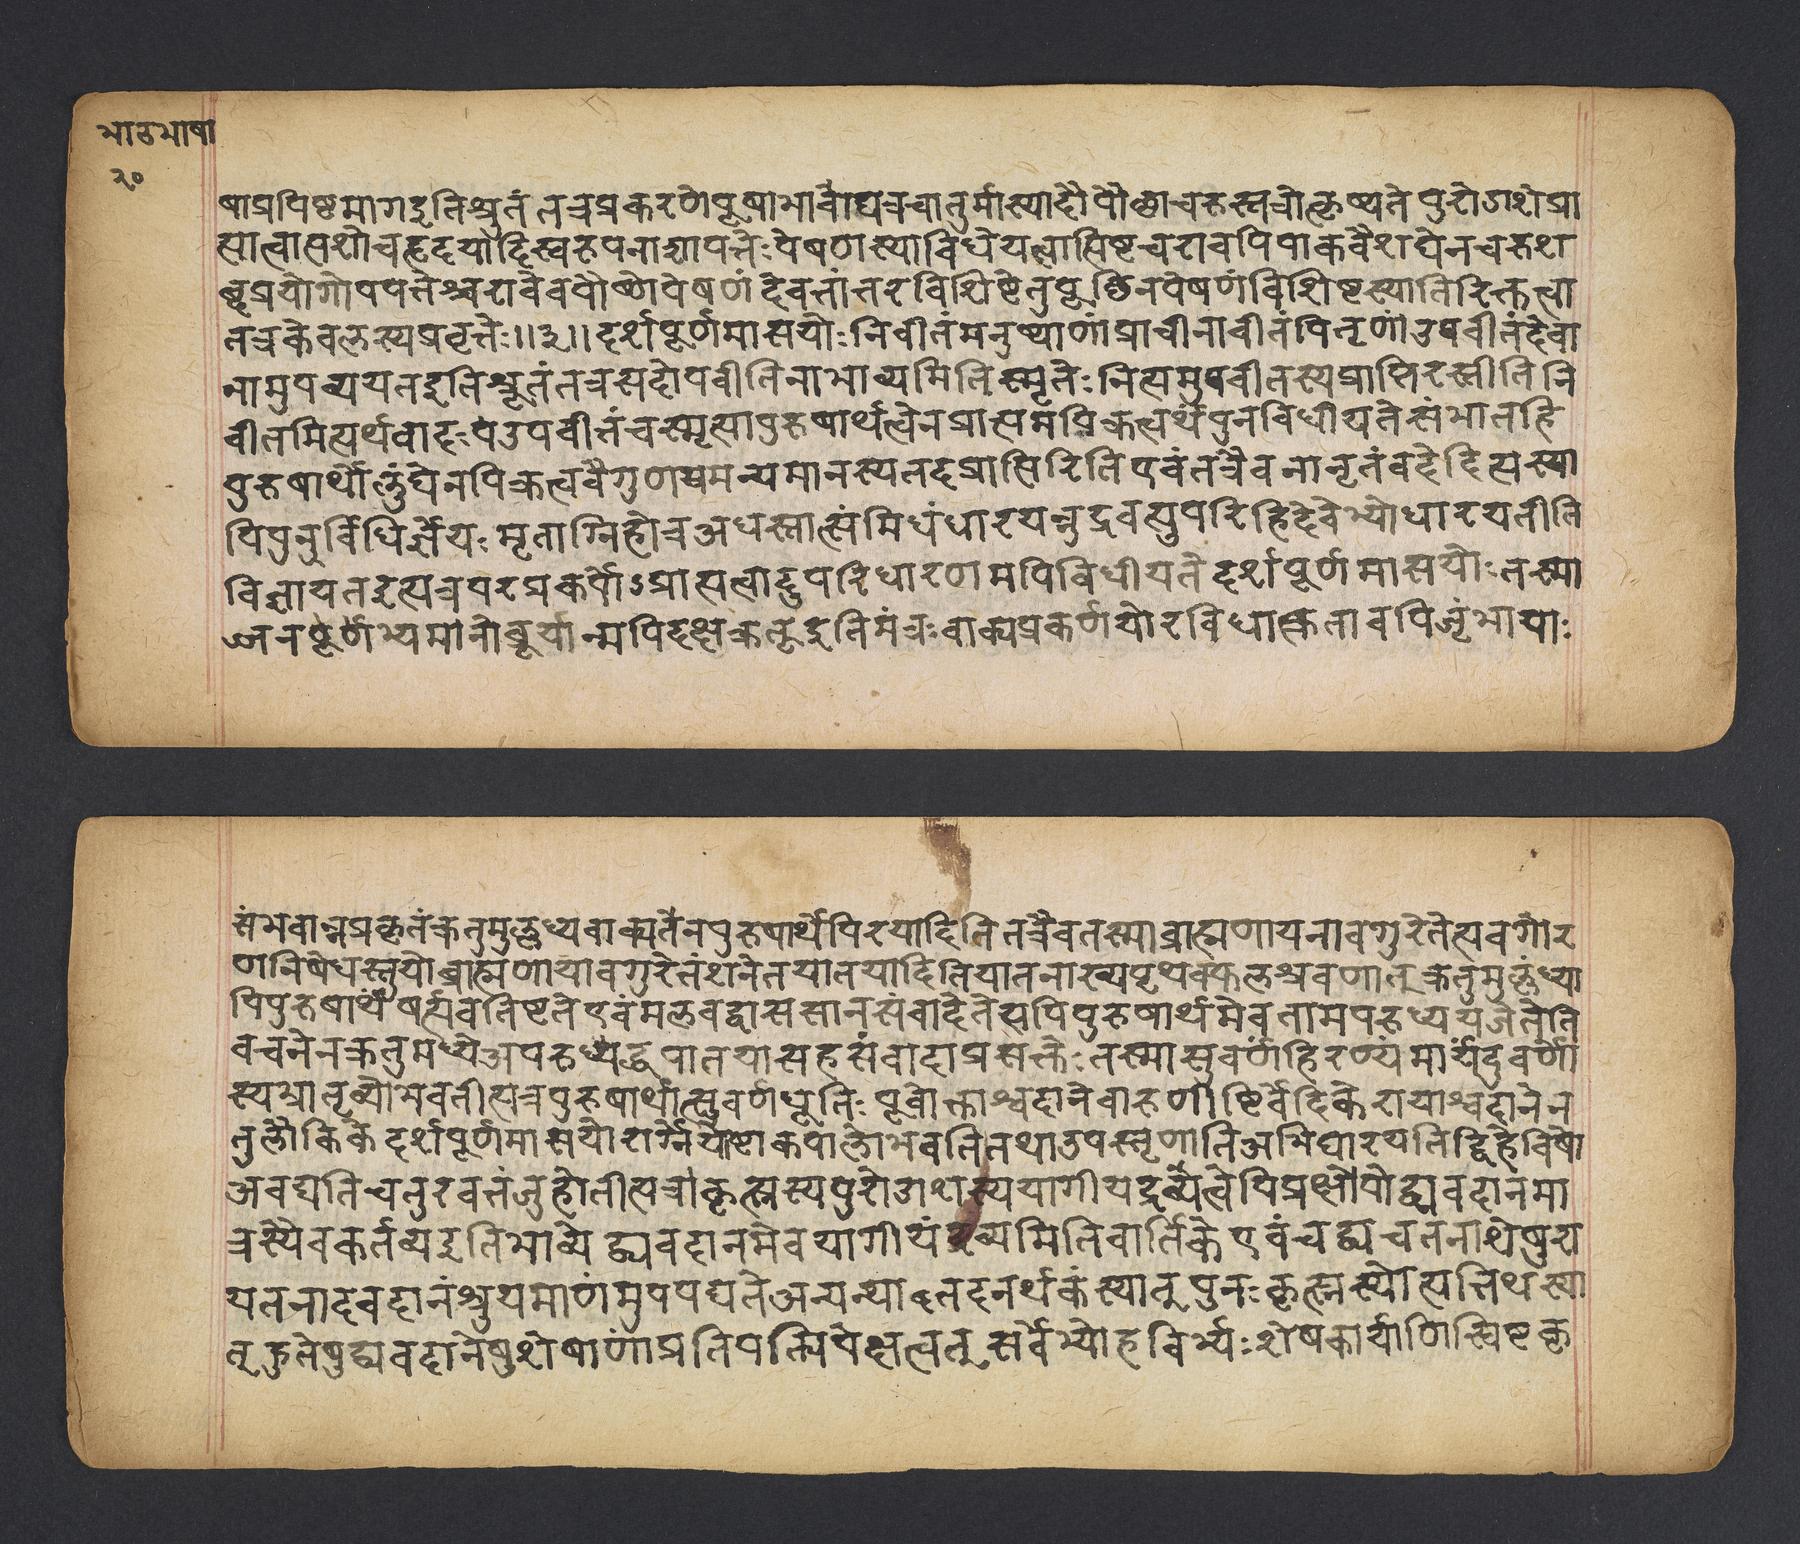 भाठभाषा
२०
षाप्रपिष्टमागइतिश्रुतं तत्रप्रकरणेपूषाभावाद्यत्रचातुर्मास्यादौ पौष्णाचरुस्तत्रोत्कृष्यते पुरोडाशेप्रा
सात्वात्पशौचहृदयादिस्वरूपनाशापत्तेः पेषणस्याविधेयत्वात्पिष्टचरावपिपाकवैशद्येनचरुश
ब्दप्रयोगोपपत्तेश्चरावेवपौष्णेपेषणं देवतांतरविशिष्टेतुपूष्णिनपेषणंविशिष्टस्यातिरिक्तत्वा
तत्रकेवलस्यप्रवृत्तेः॥३॥दर्शपूर्णमासयोः निवीतंमनुष्याणांप्राचीनावीतंपितृणांउपवीतंदेवा
नामुपव्ययतइतिश्रूतंतत्रसदोपवीतिनाभाव्यमितिस्मृतेः नित्यमुपवीतस्यप्राप्तिरस्तीतिनि
वीतमित्यर्थवादः पउपवीतंचस्मृत्यापुरुषार्थत्वेनप्राप्तमपिक्रत्वर्थंपुनविधीयतेसंभातहि
पुरुषार्थोल्लुंघेनपिक्रत्ववैगुणयमन्यमानस्यतदप्राप्तिरितिएवंतत्रैवनानृतंवदेदित्यस्या
पिपुनुर्विधिर्ज्ञेयः मृताग्निहोत्रअधस्तात्समिधंधारयन्नुद्रवत्युपरिहिदेवेभ्योधारयतीति
विज्ञायतइत्यत्रपरप्रकर्षोऽप्राप्तत्वादुपरिधारणमपिविधीयते दर्शपूर्णमासयोः तस्मा
ज्जनपूर्णभ्यमानोब्रूर्यान्मपिदक्षक्रतूइतिमंत्रः वाक्यप्रकर्णयोरविधात्क्रतावपिजृंभायाः
संभवान्नप्रकृतंक्रतुमुल्लध्यवाक्यतेनपुरुषार्थेपिरयादिति तत्रैवतस्माब्राह्मणायनावगुरेतेत्यवगोर
णनिषेधस्तुयोब्राह्मणायावगुरेतंशतेतयातयादितियातनाख्यपृथक्फलश्रवणात् क्रतुमुल्लंध्या
पिपुरुषार्थंषर्त्यवतिष्टते एवंमलवद्वाससानसंवादेतेत्यपिपुरुषार्थमेवतामपरुध्ययजेतेति
वचनेनक्रतुमध्येअपरुध्यद्धपातयासहसंवादाप्रसक्तेः तस्मात्सुवर्णंहिरण्यंमार्यंदुवर्णो
स्यभ्रातृव्योभवतीत्यत्रपुरुषार्थात्सुवर्णधृतिः पूर्वोक्ताश्वदानेवारुणीष्टिर्वैदिकेरायाश्वदानेन
तुलौकिके दर्शपूर्णमासयोराग्नेयोष्टाकपालोभवतितथाउपस्तृणातिअभिघारयतिद्विर्हविषो
अवद्यतिचतुरवत्तंजुहोतीत्यत्रोकृत्स्नस्यपुरोडाशस्ययागीयद्रव्यत्वेपिप्रक्षेपोद्व्यवदानमा
त्रस्यैवकर्तव्यइतिभाष्ये द्व्यवदानमेवयागीयंद्रव्यमितिवार्तिके एवंचद्व्यचतनाशेपुरा
यतनादवदानंश्रुयमाणंमुपपद्यतेअन्यन्याएतदनर्थकंस्यात् पुनः कृत्स्नस्योत्पत्तिथस्या
त् हुतेषुद्व्यवदानेषुशेषाणांप्रतिपत्त्यिपेक्षत्वत् सर्वेभ्योहविर्भ्यः शेषकार्याणिस्विष्टकृ